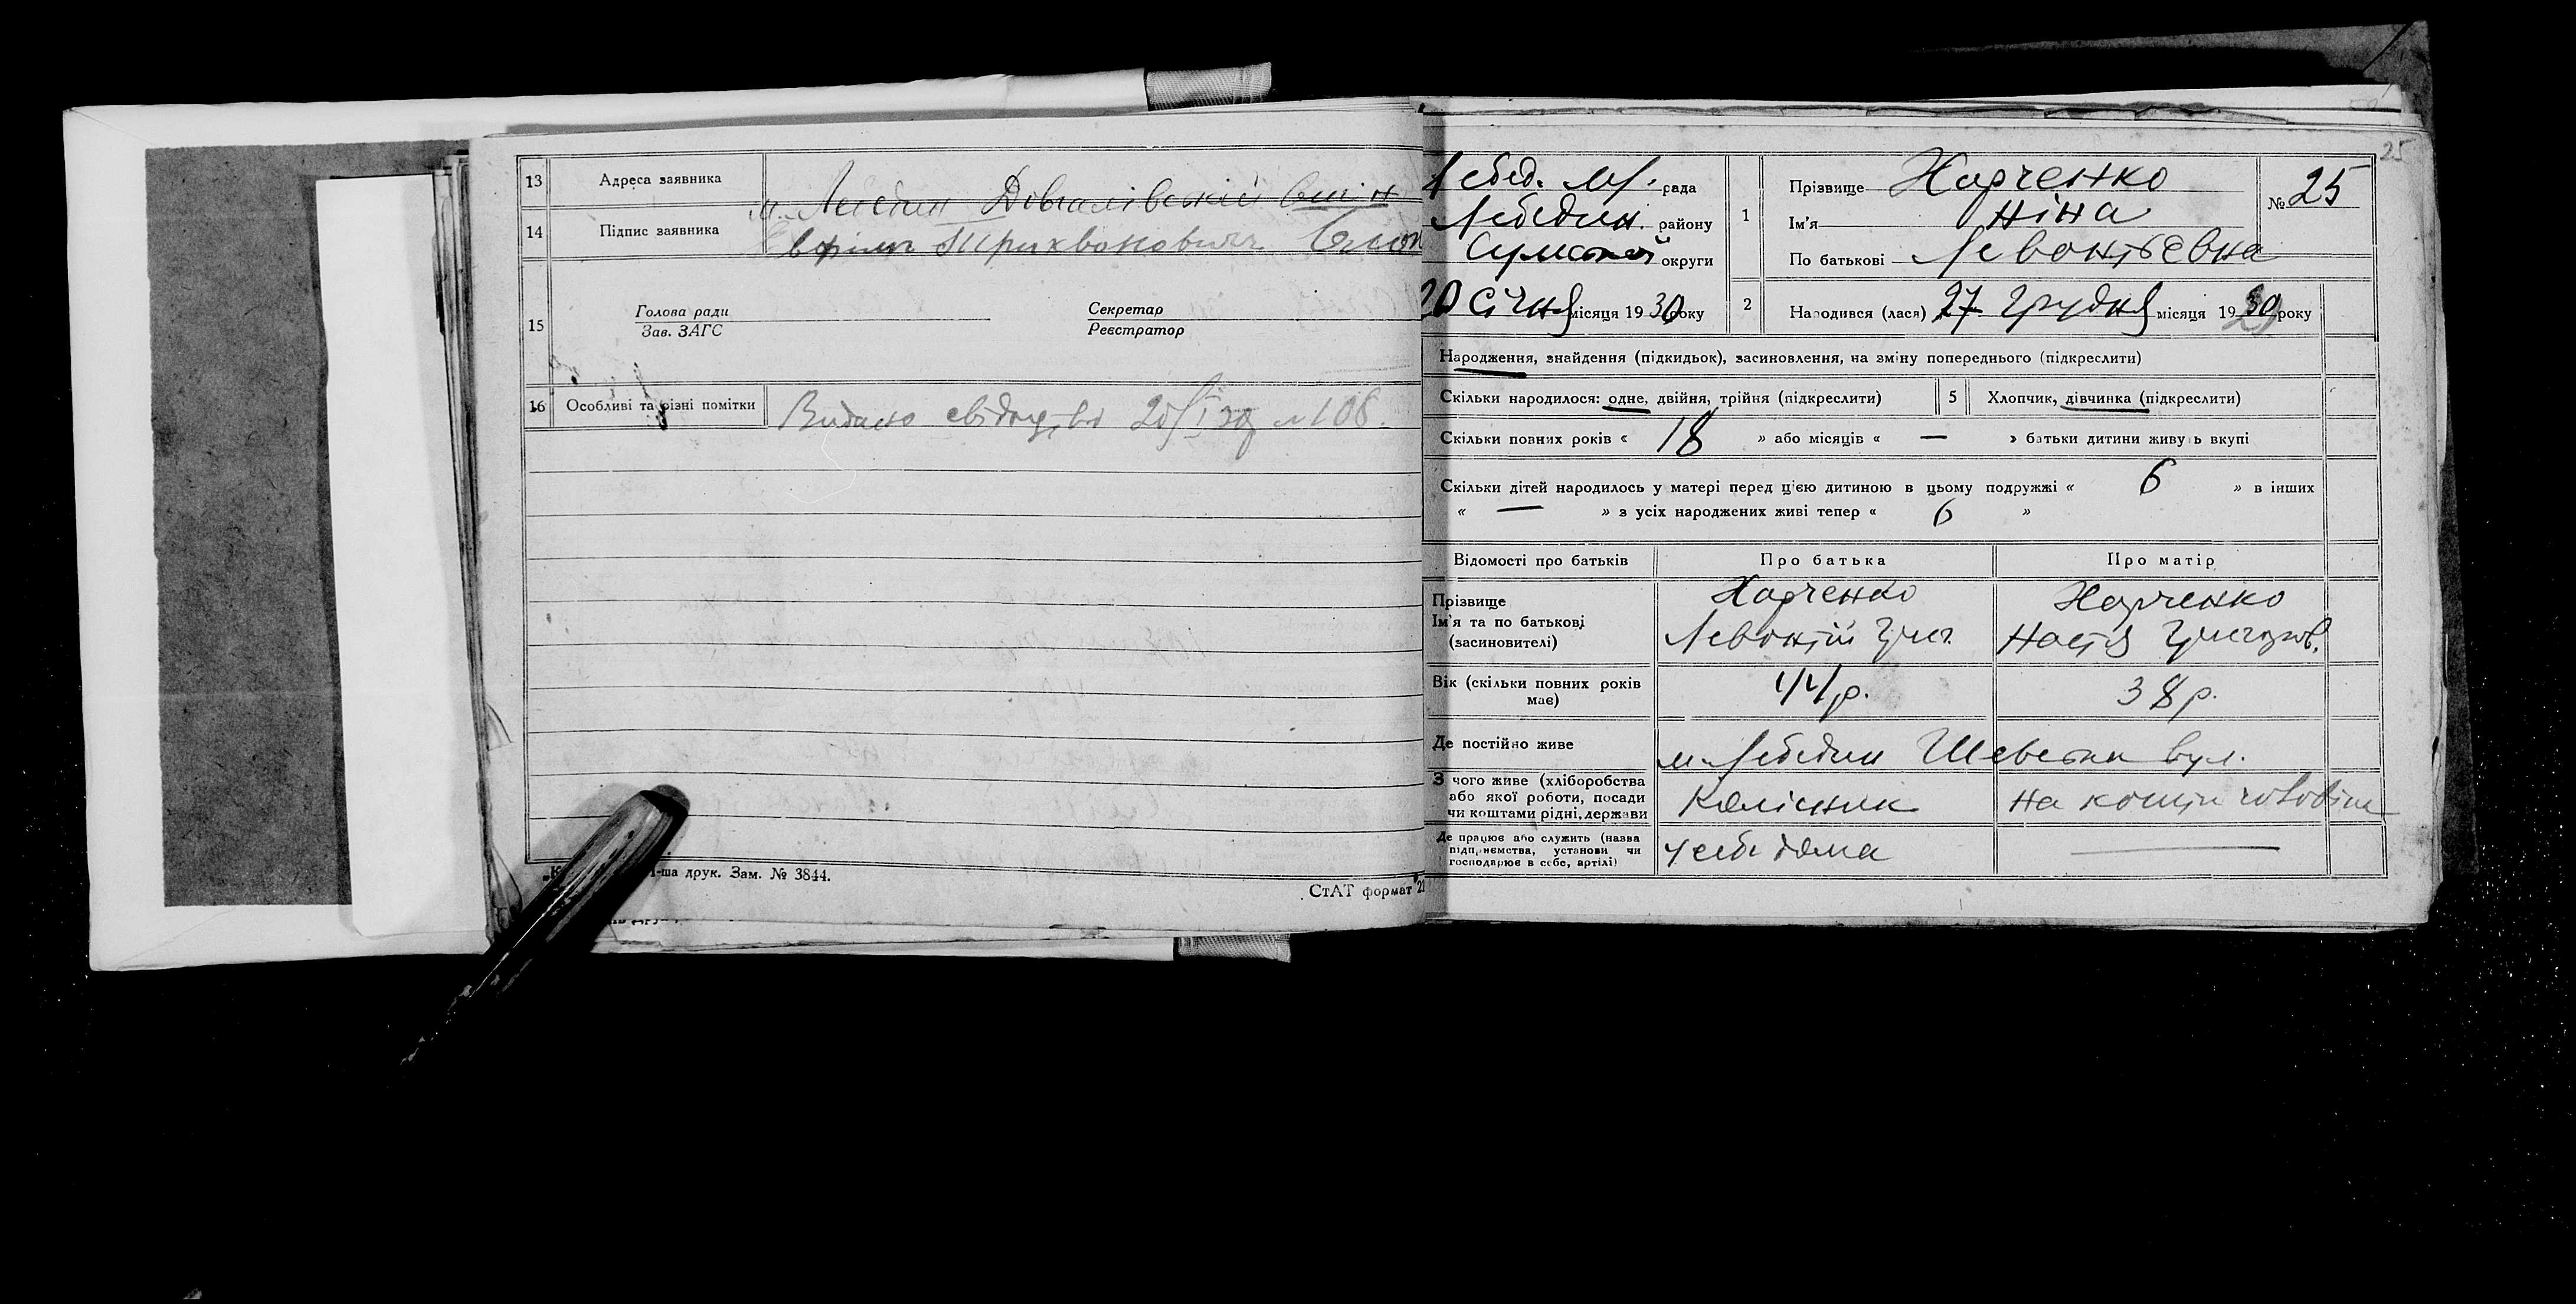 13 Адреса заявника м. Лебедин
14 Підпис заявника
15 Голова ради Секретар
Зав. ЗАГС Реєстратор
16 Особливі та різні помітки Видано 20/I 30 № 108.
1-ша друк. Зам. № 3844.
СтАТ формат
25
Лебед. м. рада
Лебедин. району
Сумської округи
20 Січня місяця 1930 року
1 Прізвище Харченко
Ім'я Ніна
По батькові Левонтьевна
№ 25
2 Народився (лася) 27 Грудня місяця 19 року
Народження, знайдення (підкидьок), засиновлення, на зміну попереднього (підкреслити)
Скільки народилося: одне, двійня, трійня (підкреслити) 5 Хлопчик, дівчинка (підкреслити)
Скільки повних років « 18 » або місяців « — » батьки дитини живуть вкупі
Скільки дітей народилось у матері перед цією дитиною в цьому подружжі « 6 » в інших
« — » з усіх народжених живі тепер « 6 »
Відомості про батьків Про батька Про матір
Прізвище Харченко Харченко
Ім'я та по батькові Левонтій Григ. Настя
(засиновителі)
Вік (скільки повних років має) 44 р. 38 р.
Де постійно живе м. Лебедин вул.
З чого живе (хліборобства
або якої роботи, посади
чи коштами рідні, держави
Колісник на кошти
Де працює або служить (назва
підприємства, установи чи
господарює в себе, артілі)
у себе дома